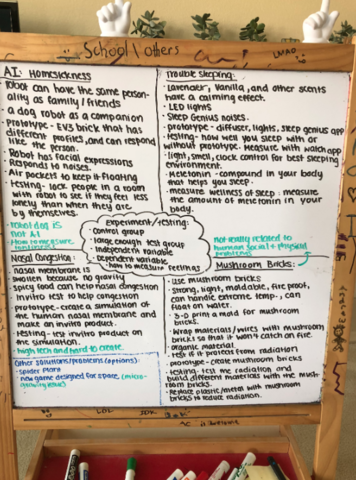 School/others
LMAO
AI: Homesickness
• Robot can have the same person-
ality as family/friends
• a dog robot as a companion
• Prototype - EV3 brick that has
different profiles, and can respond
like the person.
• Robot has facial expressions
• Responds to noises.
• Air pockets to keep it floating
• testing- lock people in a room
with robot to see if they feel less
lonely than when they are
by themselves.
• robot dog is
not AI
• How to measure
Trouble Sleeping:
• Lavender, Vanilla, and other scents
have a calming effect.
• LED lights
• Sleep Genius noises.
• prototype - diffuser, lights, sleep genius app
• testing - how well you sleep with or
without prototype. Measure with watch app
• light, smell, clock control for best sleeping
environment.
• Meletonin - compound in your body
that helps you sleep.
• measure wellness of sleep: measure
the amount of meletonin in your
body.
Experiment/testing:
• control group
• large enough test group
• independent variable
• dependent variable
• how to measure feelings
not really related to
human social + physical
problems
Nasal Congestion:
• nasal membrane is
swollen because no gravity
• spicy food can help nasal congestion
• invitro test to help congestion
• prototype - create a simulation of
the human nasal membrane and
make an invitro product.
• testing - test invitro product on
the simulation.
• high tech and hard to create.
Other solutions/problems (options):
• spider plant
• new game designed for space (micro-
gravity issue)
Mushroom Bricks:
• use mushroom bricks
• strong, light, moldable, fire proof,
can handle extreme temp., can
float on water.
• 3-D print a mold for mushroom
bricks.
• Wrap materials/wires with mushroom
bricks so that it won't catch on fire.
• organic material
• test if it protects from radiation
• prototype - create mushroom
bricks
• testing - test the radiation and
build different materials with the mush-
room bricks.
• Replace plastic/metal with mushroom
bricks to reduce radiation.
LOL
IDK